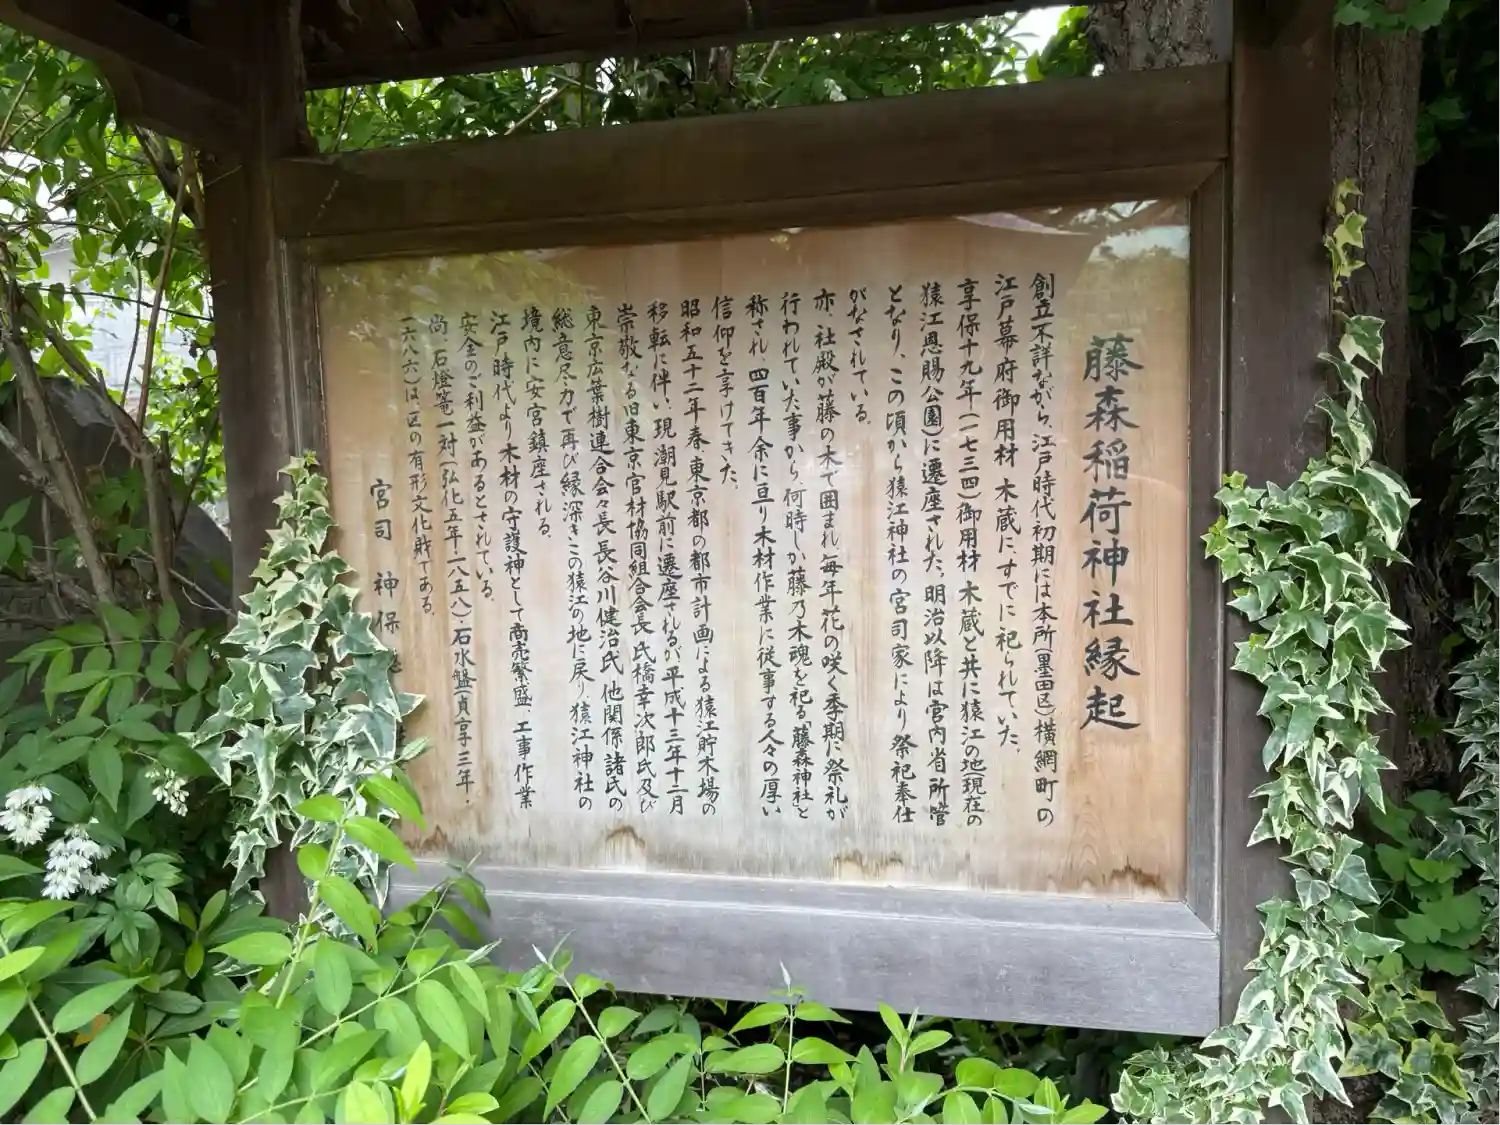 藤森稲荷神社縁起
創立不詳ながら、江戸時代初期には本所(墨田区)横網町の
江戸幕府御用材木蔵に、すでに祀られていた。
享保十九年(一七三四)御用材木蔵と共に猿江の地(現在の
猿江恩賜公園)に遷座された。明治以降は宮内省所管
となり、この頃から猿江神社の宮司家により祭祀奉仕
がなされている。
亦、社殿が藤の木で囲まれ毎年花の咲く季期に祭礼が
行われていた事から、何時しか藤乃木魂を祀る「藤森神社」と
称され、四百年余に亘り木材作業に従事する人々の厚い
信仰を享けてきた。
昭和五十二年春、東京都の都市計画による猿江貯木場の
移転に伴い、現潮見駅前に遷座されるが平成十三年十二月
崇敬なる旧東京官材協同組合会長氏橋幸次郎氏及び
東京広葉樹連合会々長長谷川健治氏、他関係諸氏の
総意尽力で再び縁深きこの猿江の地に戻り、猿江神社の
境内に安宮鎮座される。
江戸時代より木材の守護神として商売繁盛、工事作業
安全のご利益があるとされている。
尚、石燈篭一対(弘化五年・一八五八)・石水盤(貞享三年・
一六八六)は、区の有形文化財である。
宮司 神保